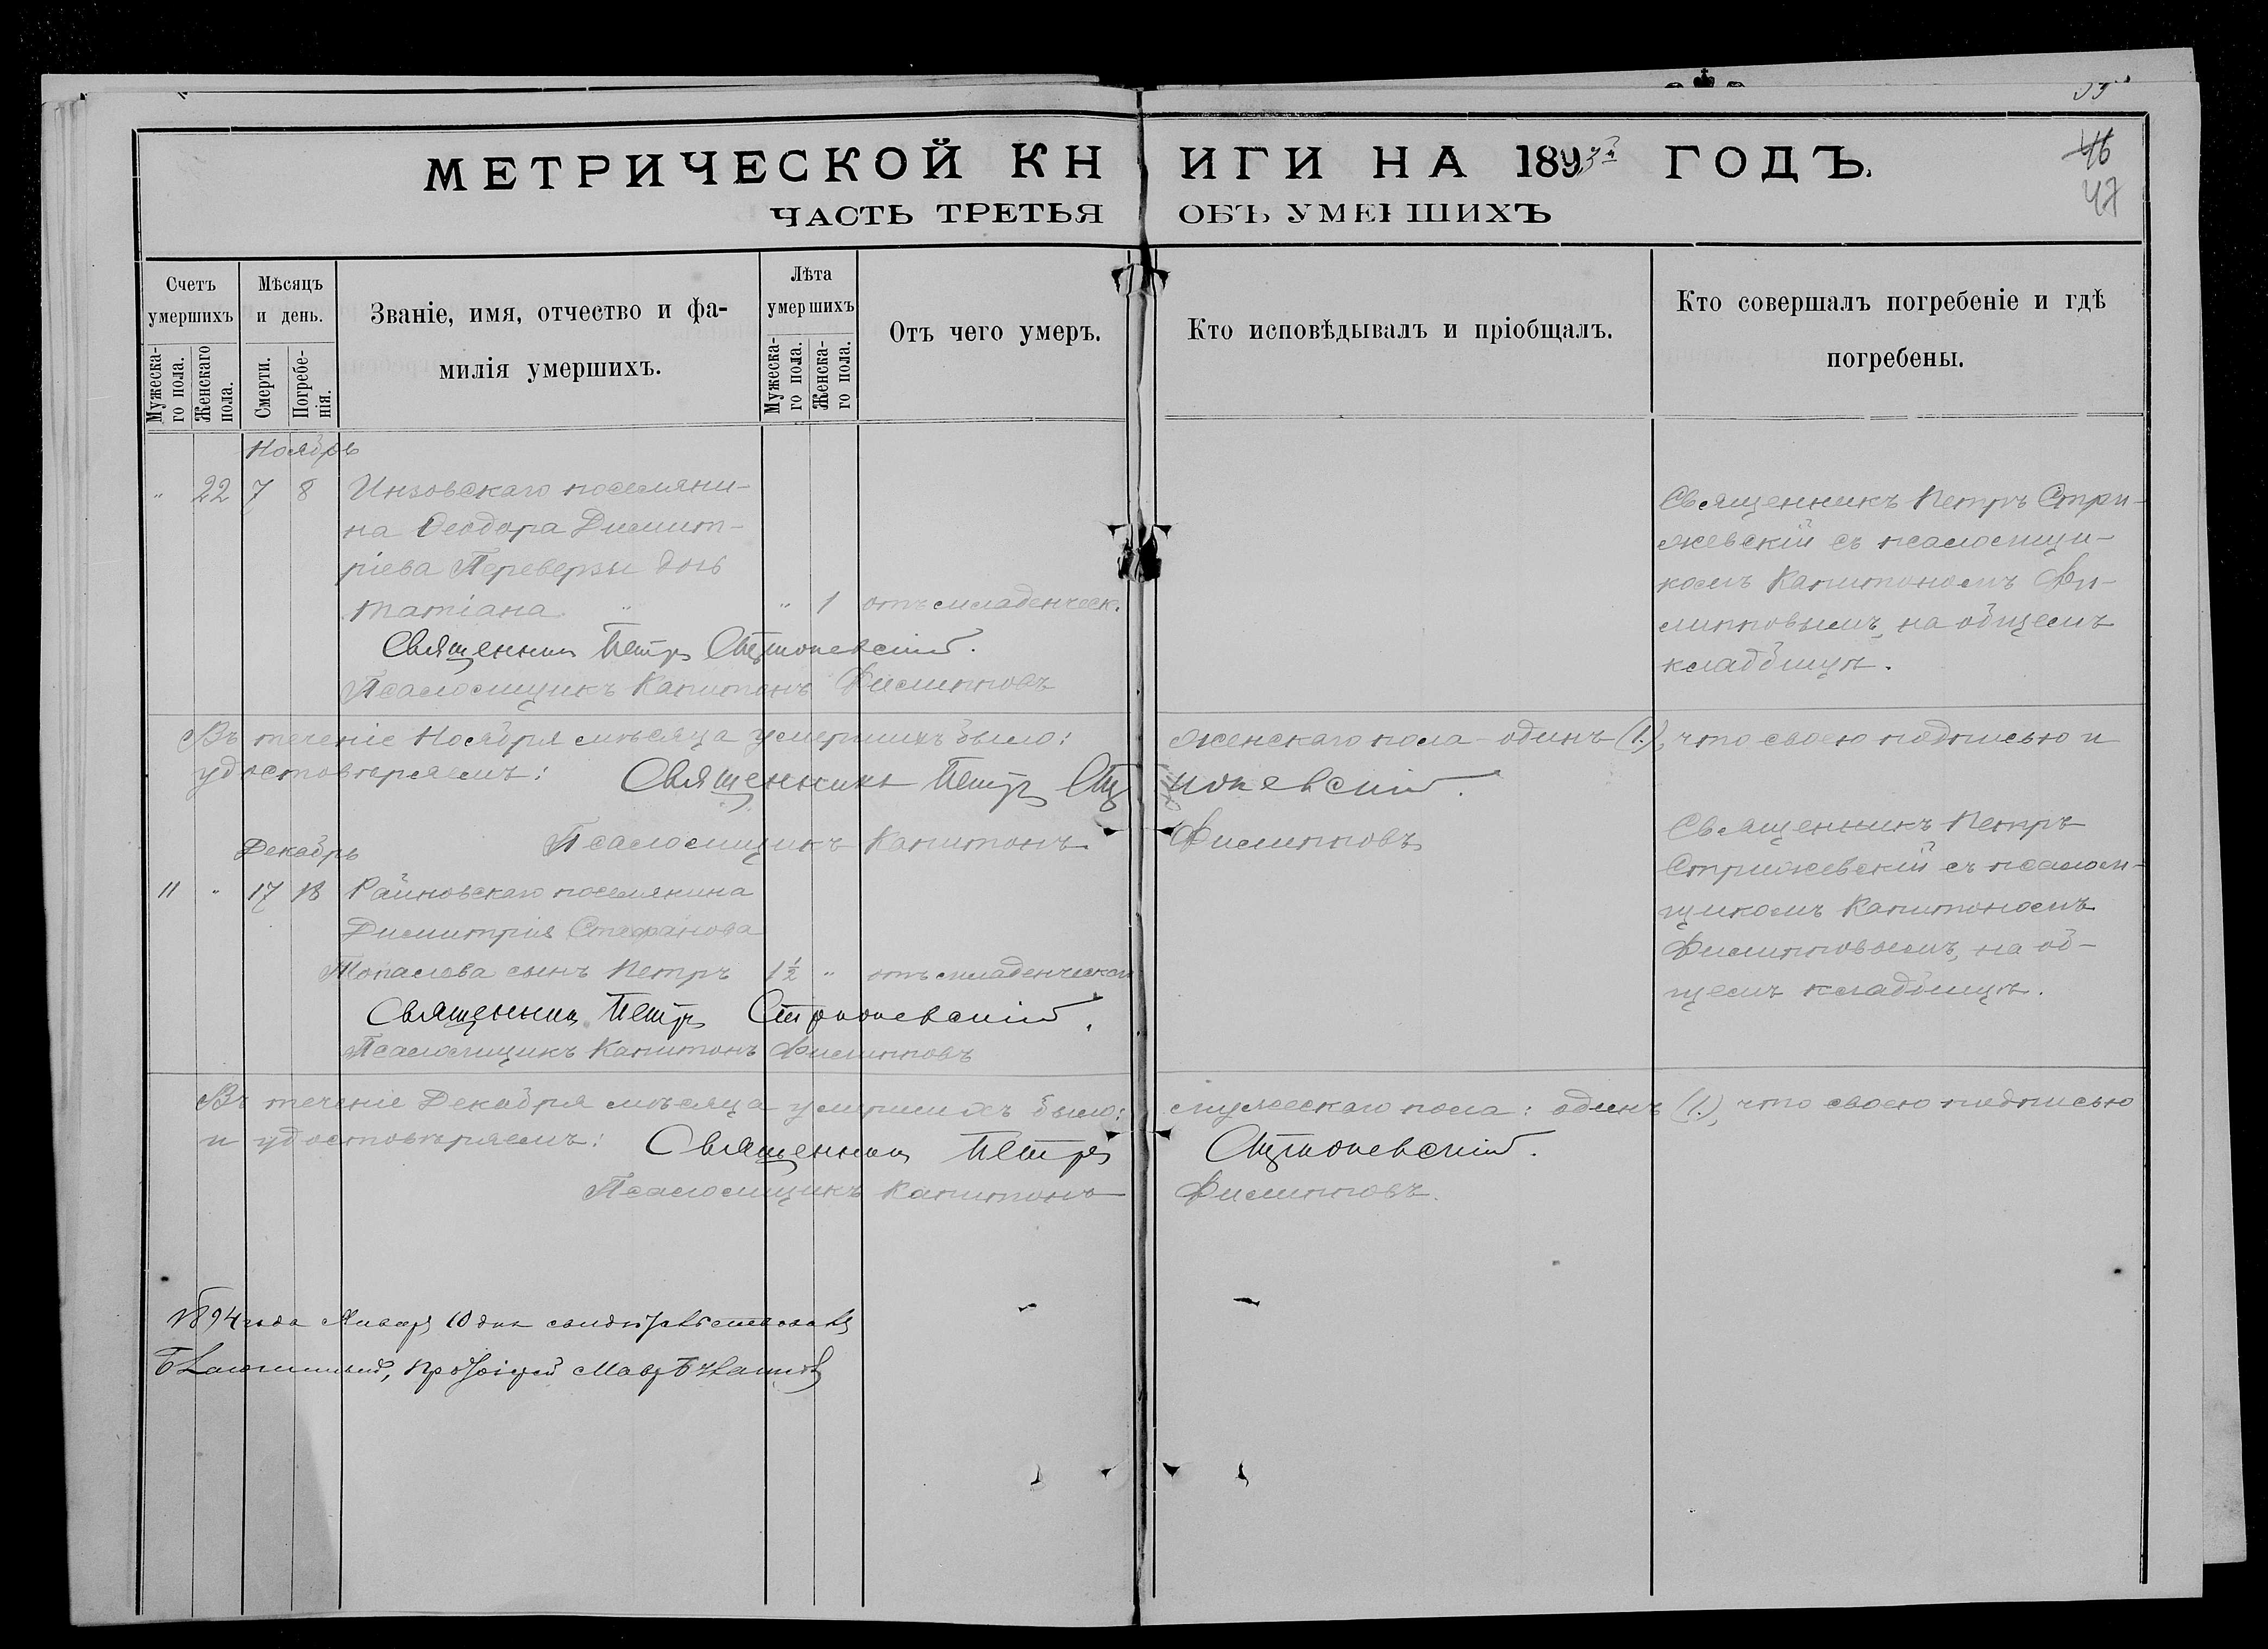 МЕТРИЧЕСКОЙ КНИГИ НА 1893й ГОДЪ.
46
47
ЧАСТЬ ТРЕТЬЯ ОБЪ УМЕРШИХЪ
Счетъ умершихъ
Мужеска-го пола.
Женскаго пола.
Мѣсяцъ и день.
Смерти.
Погребе-нія.
Званіе, имя, отчество и фа-
милія умершихъ.
Лѣта умершихъ
Мужеска-го пола.
Женска-го пола.
Отъ чего умеръ.
Кто исповѣдывалъ и пріобщалъ.
Кто совершалъ погребеніе и гдѣ
погребены.
Ноябрь
" 22 7 8 Инзовскаго поселяни-
на Ѳеодора Димит-
ріева Переверзы дочь
Татіана " " 1 отъ младенческ.
Священникъ Петръ Стри-
жевскій съ псаломщи-
комъ Капитономъ Фи-
липповымъ, на общемъ
кладбищѣ.
Священникъ Петръ Стрижевскій.
Псаломщикъ Капитонъ Филипповъ
Въ теченіе Ноября мѣсяца умершихъ было: женскаго пола - одинъ (1.), что своею подписью и
удостовѣряемъ: Священникъ Петръ Стрижевскій.
Псаломщикъ Капитонъ Филипповъ
Декабрь
11 " 17 18 Райновскаго поселянина
Димитрія Стефанова
Топалова сынъ Петръ 1½ " отъ младенческой
Священникъ Петръ
Стрижевскій съ псалом-
щикомъ Капитономъ
Филипповымъ, на об-
щемъ кладбищѣ.
Священникъ Петръ Стрижевскій.
Псаломщикъ Капитонъ Филипповъ
Въ теченіе Декабря мѣсяца умершихъ было: мужескаго пола: одинъ (1.), что своею подписью
и удостовѣряемъ: Священникъ Петръ Стрижевскій.
Псаломщикъ Капитонъ Филипповъ.
1894 года Января 10 дня свидѣтельствовалъ
Благочинный, Протоіерей